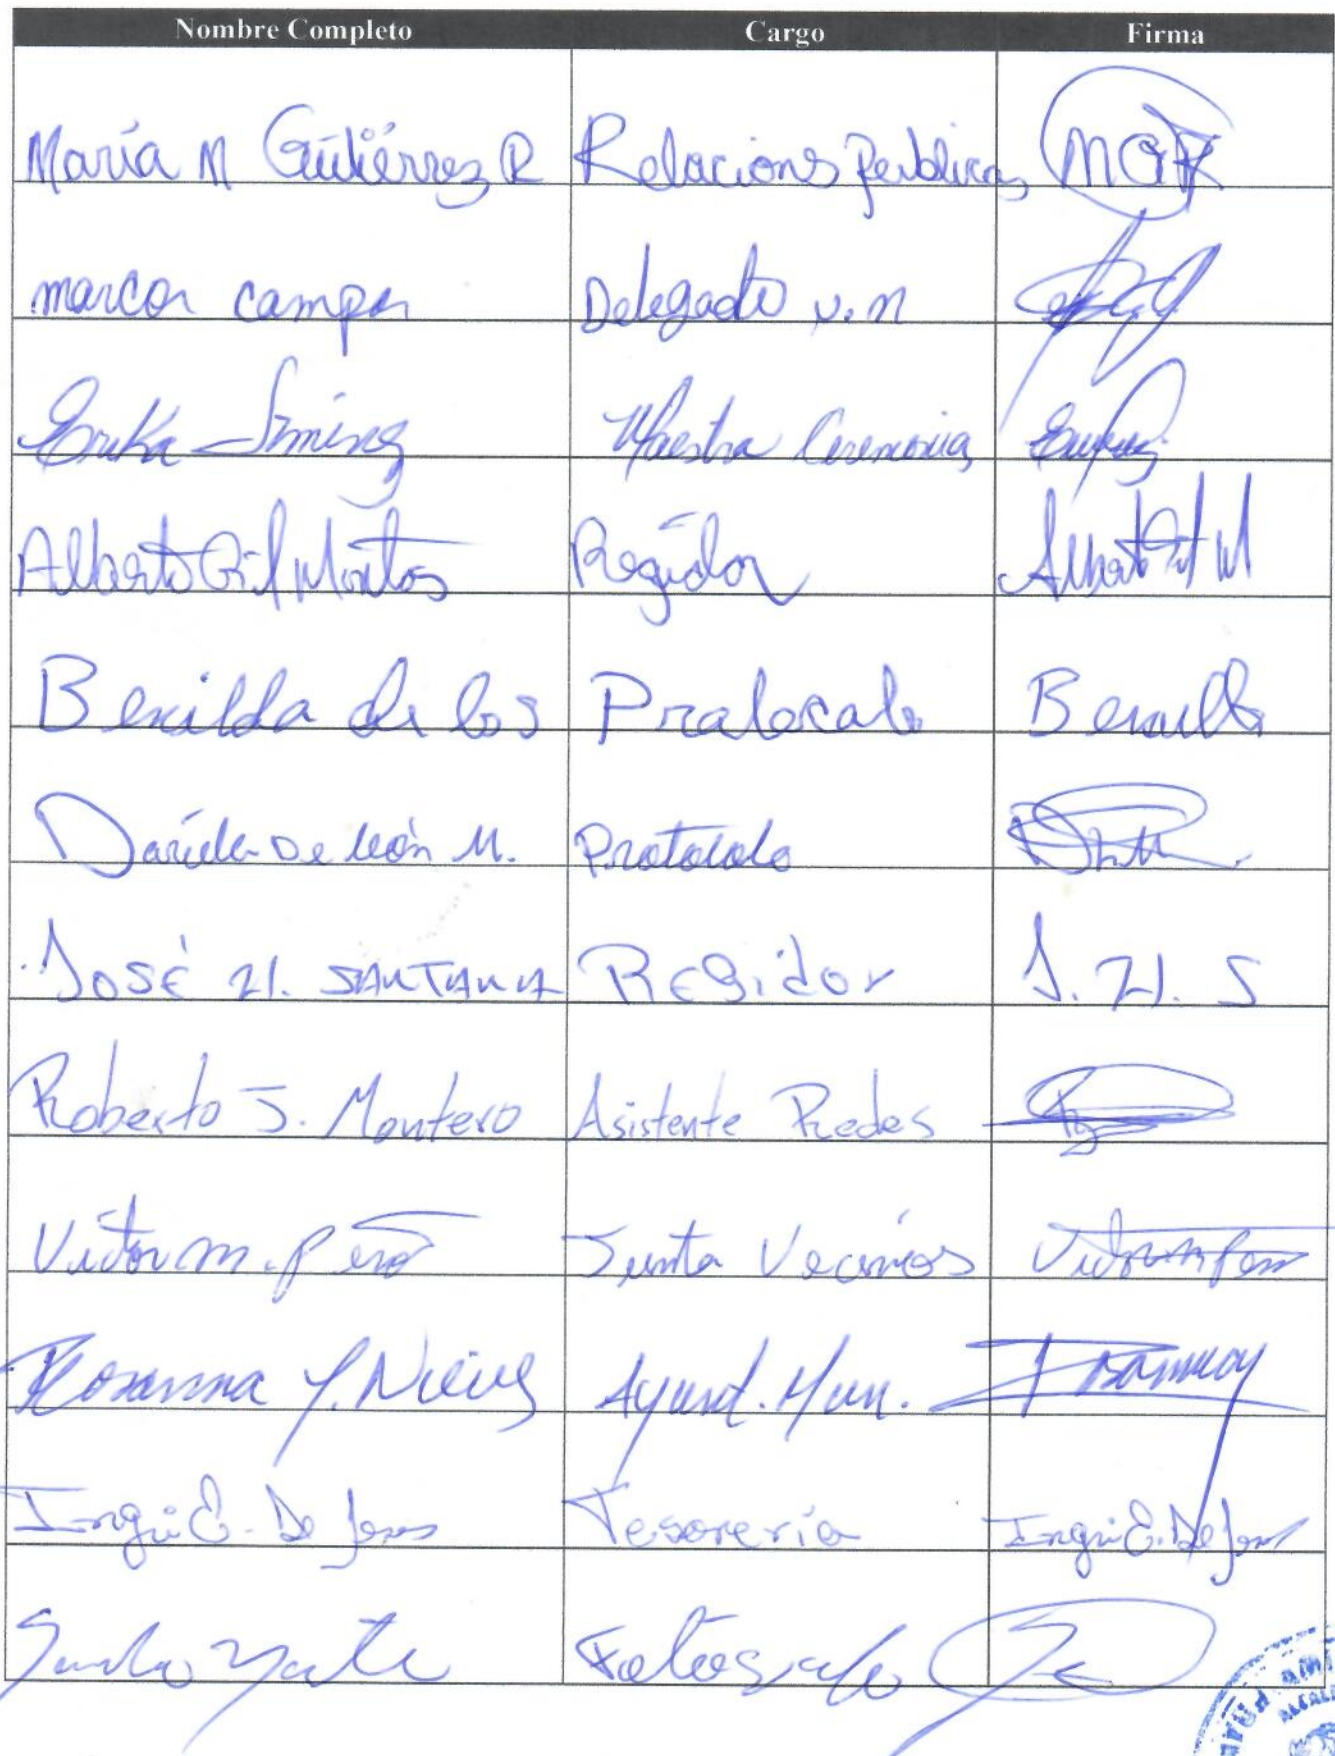 Nombre Completo Cargo Firma
María M Gutiérrez R Relacions Publicas MGR
marcos campos Delegado v.m
Erika Jiminez Maestra Ceremonias
Alberto Gil Montos Regidor Alberto Gil M
Benilda de los Pralocalo Benilda
Dariela De león M. Protocolo
JOSÉ H. SANTANA REgidor J. H. S
Roberto J. Montero Asistente Redes
Victor m. peña Junta Vecinos Victor m peña
Rosanna Y. Nieves Ayunt. Mun.
Ingri E. De Jesus Tesorería Ingri E. De Jesus
Fotografo
ALCAL